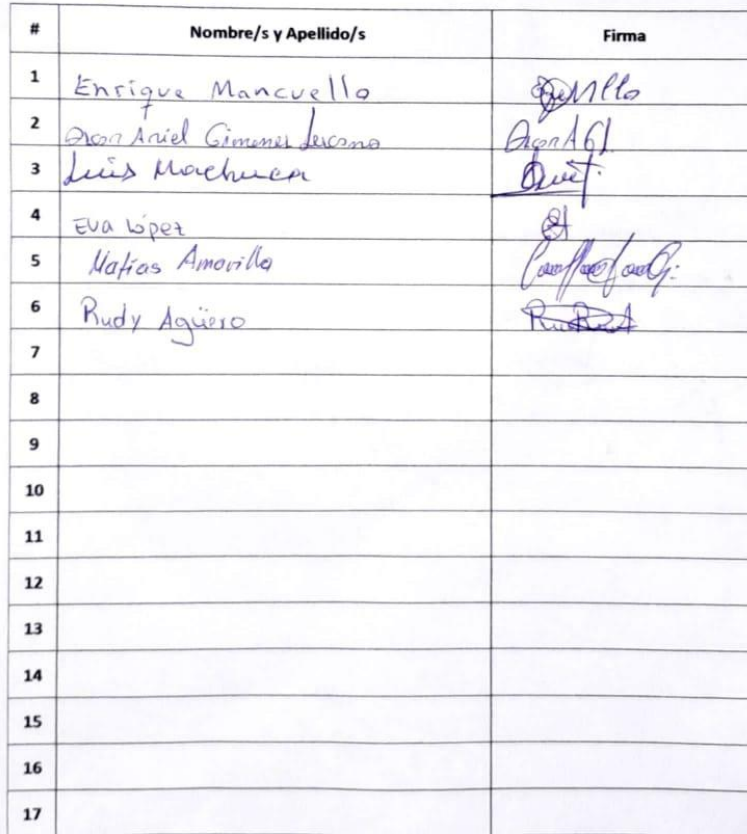 # Nombre/s y Apellido/s Firma
1 Enrique Mancuello
2 Ariel Gimenez
3 Luis Machuca
4 Eva López
5 Matías Amarilla
6 Rudy Agüero
7
8
9
10
11
12
13
14
15
16
17